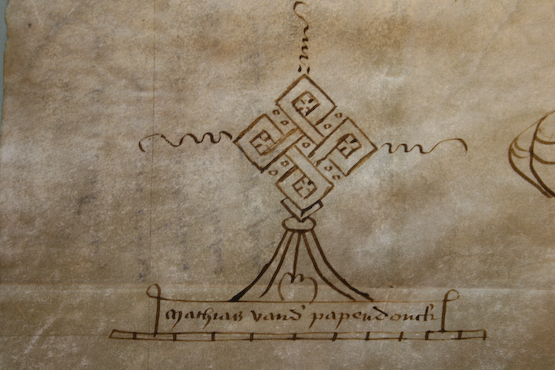 Mathias vand' papendonck